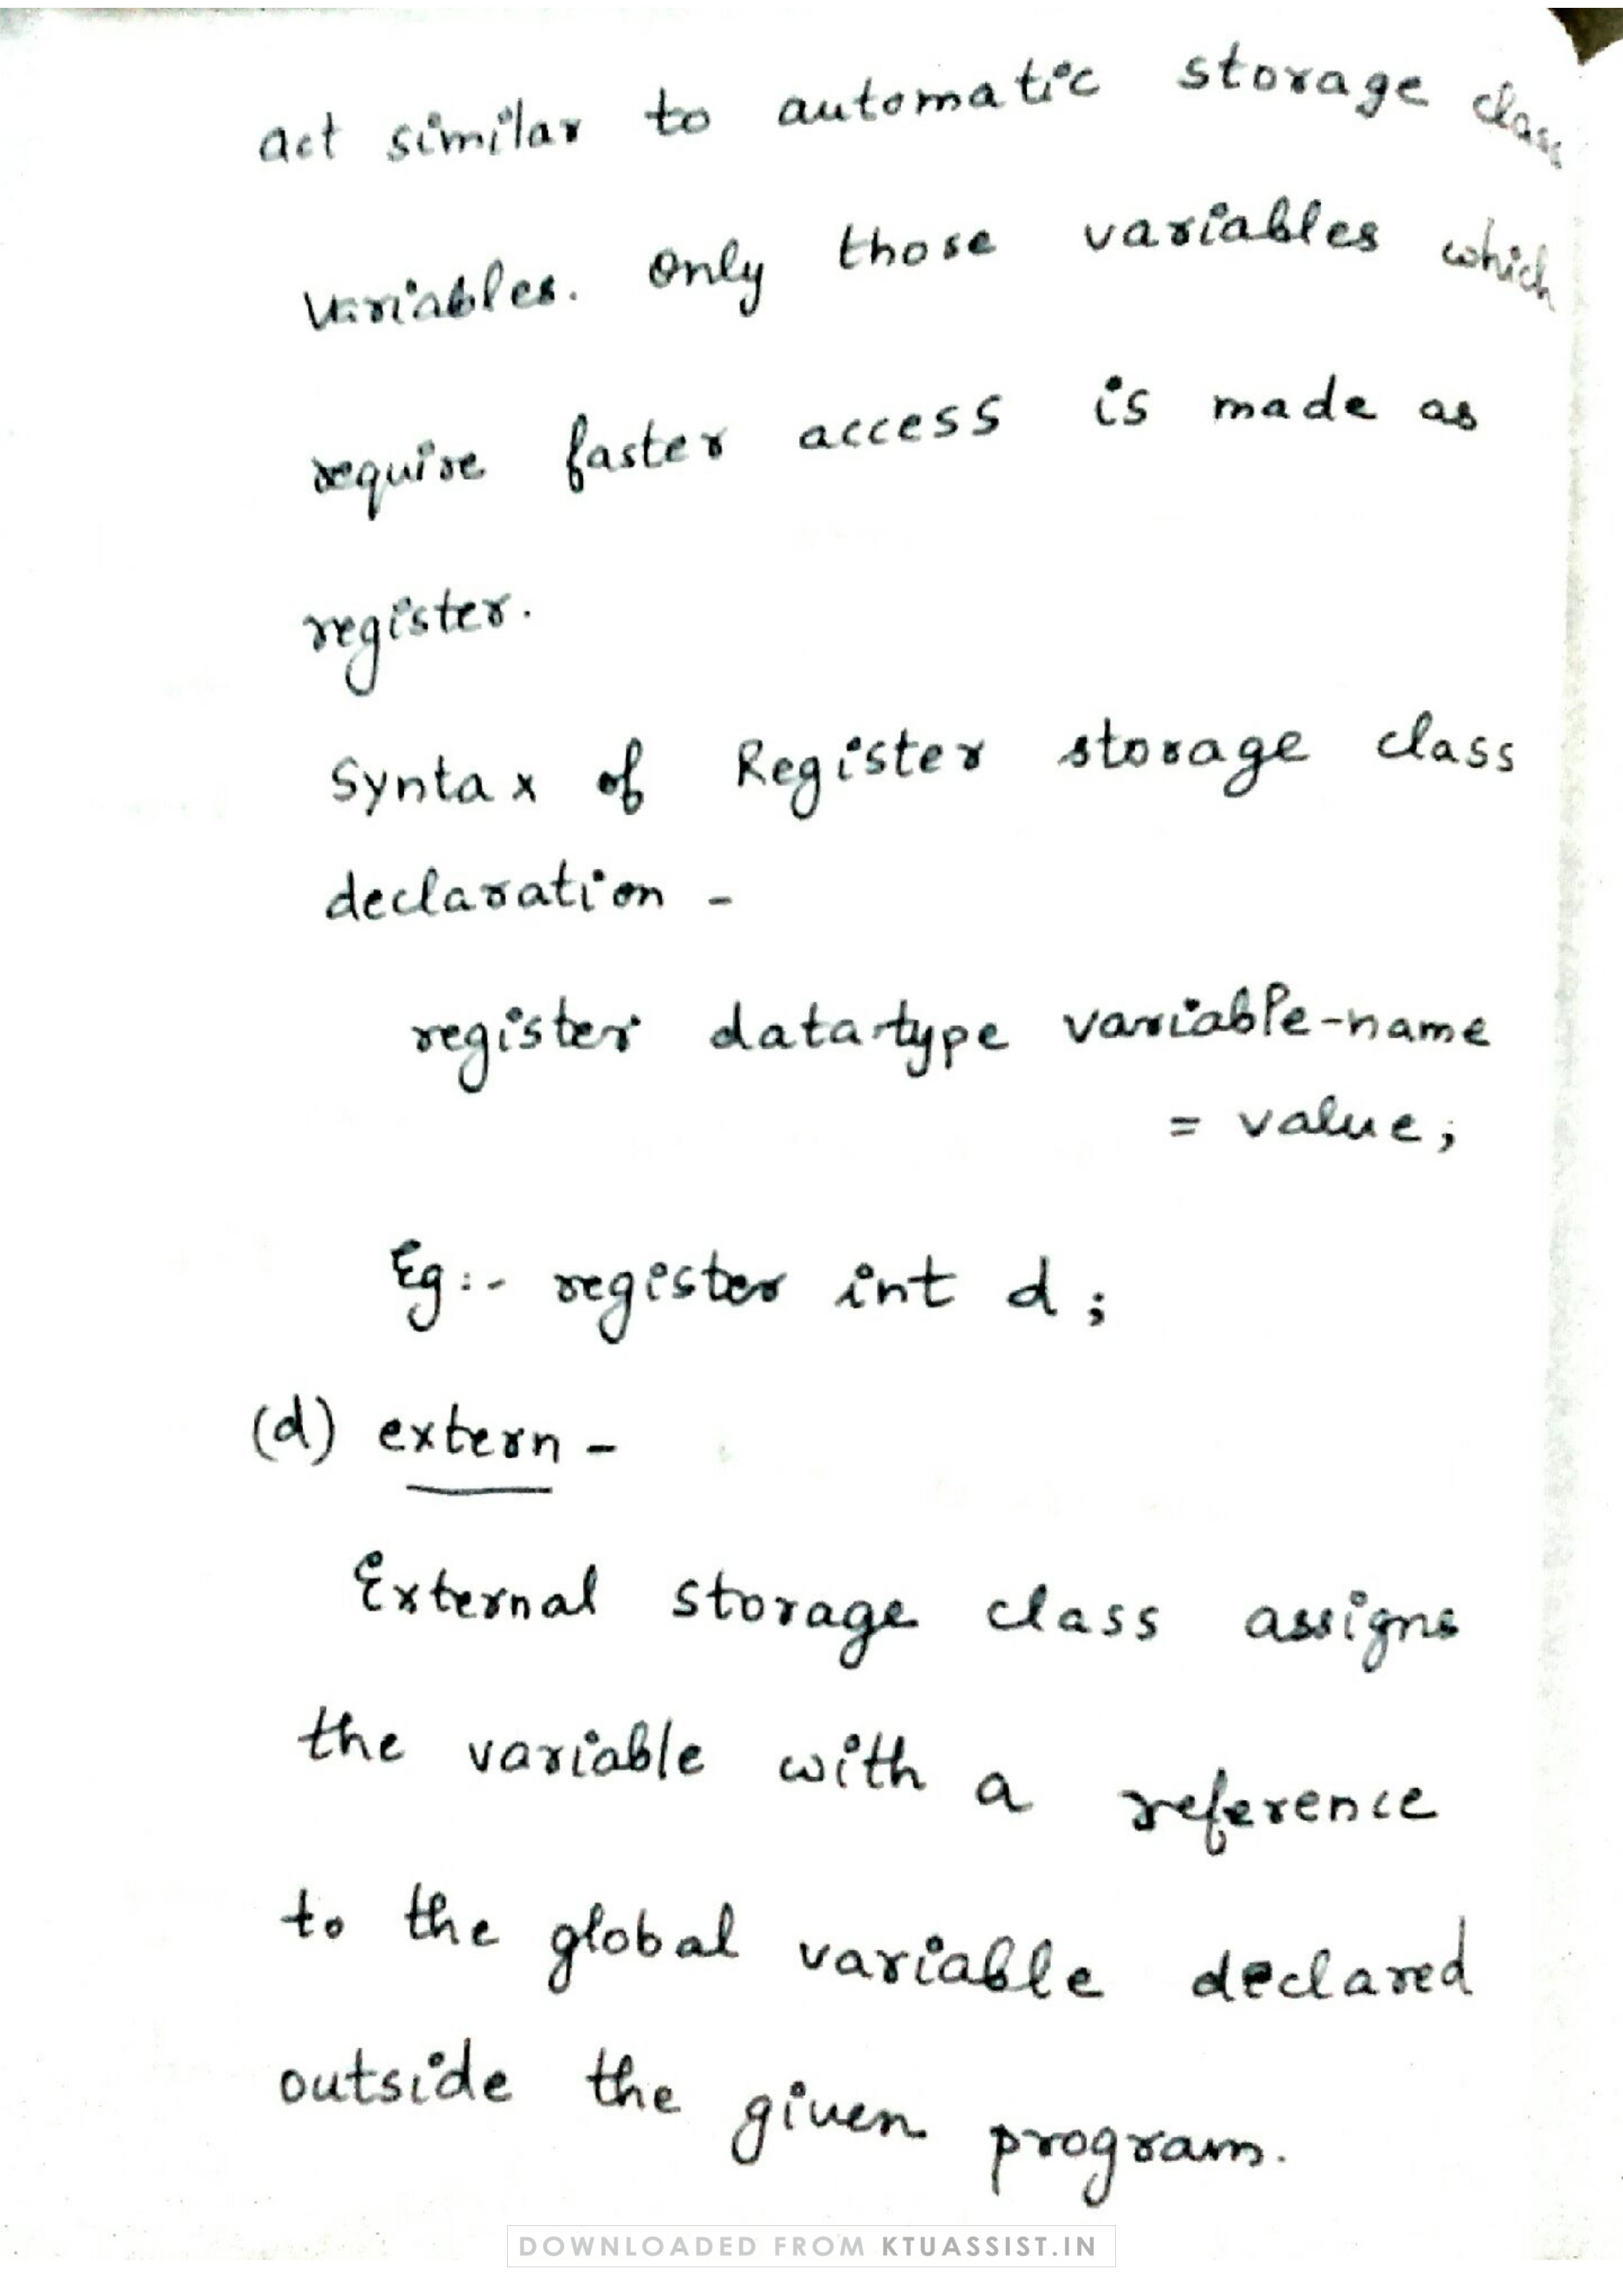 act similar to automatic storage class
variables. only those variables which
require faster access is made as
register.
Syntax of Register storage class
declaration -
register datatype variable-name
= value;
Eg:- register int d;
(d) extern -
External storage class assigns
the variable with a reference
to the global variable declared
outside the given program.
DOWNLOADED FROM KTUASSIST.IN